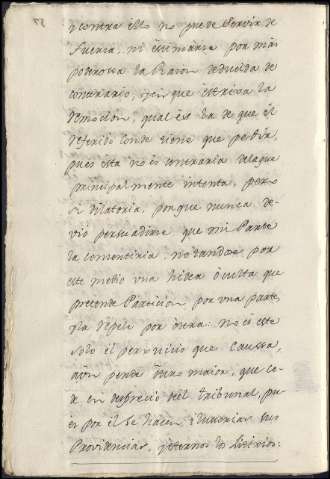 y contra ello no puede servir de
fuerza, ni estimarse por mas
poderosa la Razon deducida de
contrario, y en que estriva la
remocion, qual es la de que el
referido Conde tiene que pedir,
pues esta no es contraria de la que
principalmente intenta, pero
si dilatoria, porque nunca de
vió persuadirse que mi Parte
la consentiria: notandose por
este medio una hidea oculta que
pretende Particion por una parte,
y la repele por otra: No es este
solo el perjuicio que Caussa,
aun pende otro maior, que ce-
de en desprecio del tribunal, pu-
es por él se hacen ilusorias sus
Providencias, y eternos los litixios.